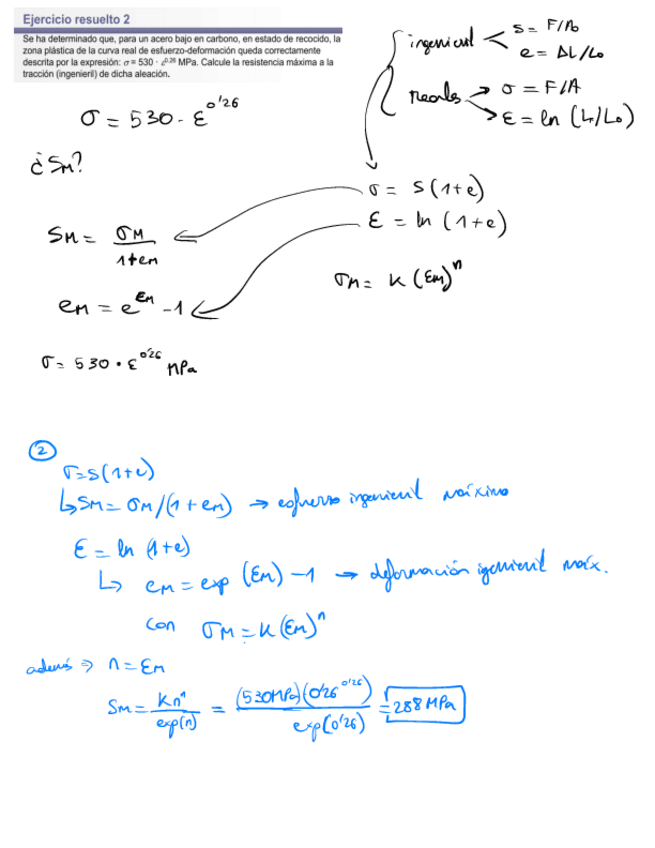 Ejercicio resuelto 2
Se ha determinado que, para un acero bajo en carbono, en estado de recocido, la
zona plástica de la curva real de esfuerzo-deformación queda correctamente
descrita por la expresión: σ = 530 · ε^0.26 MPa. Calcule la resistencia máxima a la
tracción (ingenieril) de dicha aleación.
ingenieril
S = F/A₀
e = ΔL/L₀
reales → σ = F/A
→ ε = ln (L/L₀)
σ = 530 · ε^0'26
¿SM?
σ = S(1+e)
ε = ln (1+e)
SM = σM / 1+eM
σM = K (εM)^n
eM = e^εM - 1
σ = 530 · ε^0'26 MPa
②
σ = S(1+e)
↳ SM = σM/(1+eM) → esfuerzo ingenieril máximo
ε = ln (1+e)
↳ eM = exp (εM) - 1 → deformación igenieril máx.
con σM = K(εM)^n
además ⇒ n = εM
SM = Kn^n / exp(n) = (530MPa)(0'26^0'26) / exp(0'26) = 288 MPa